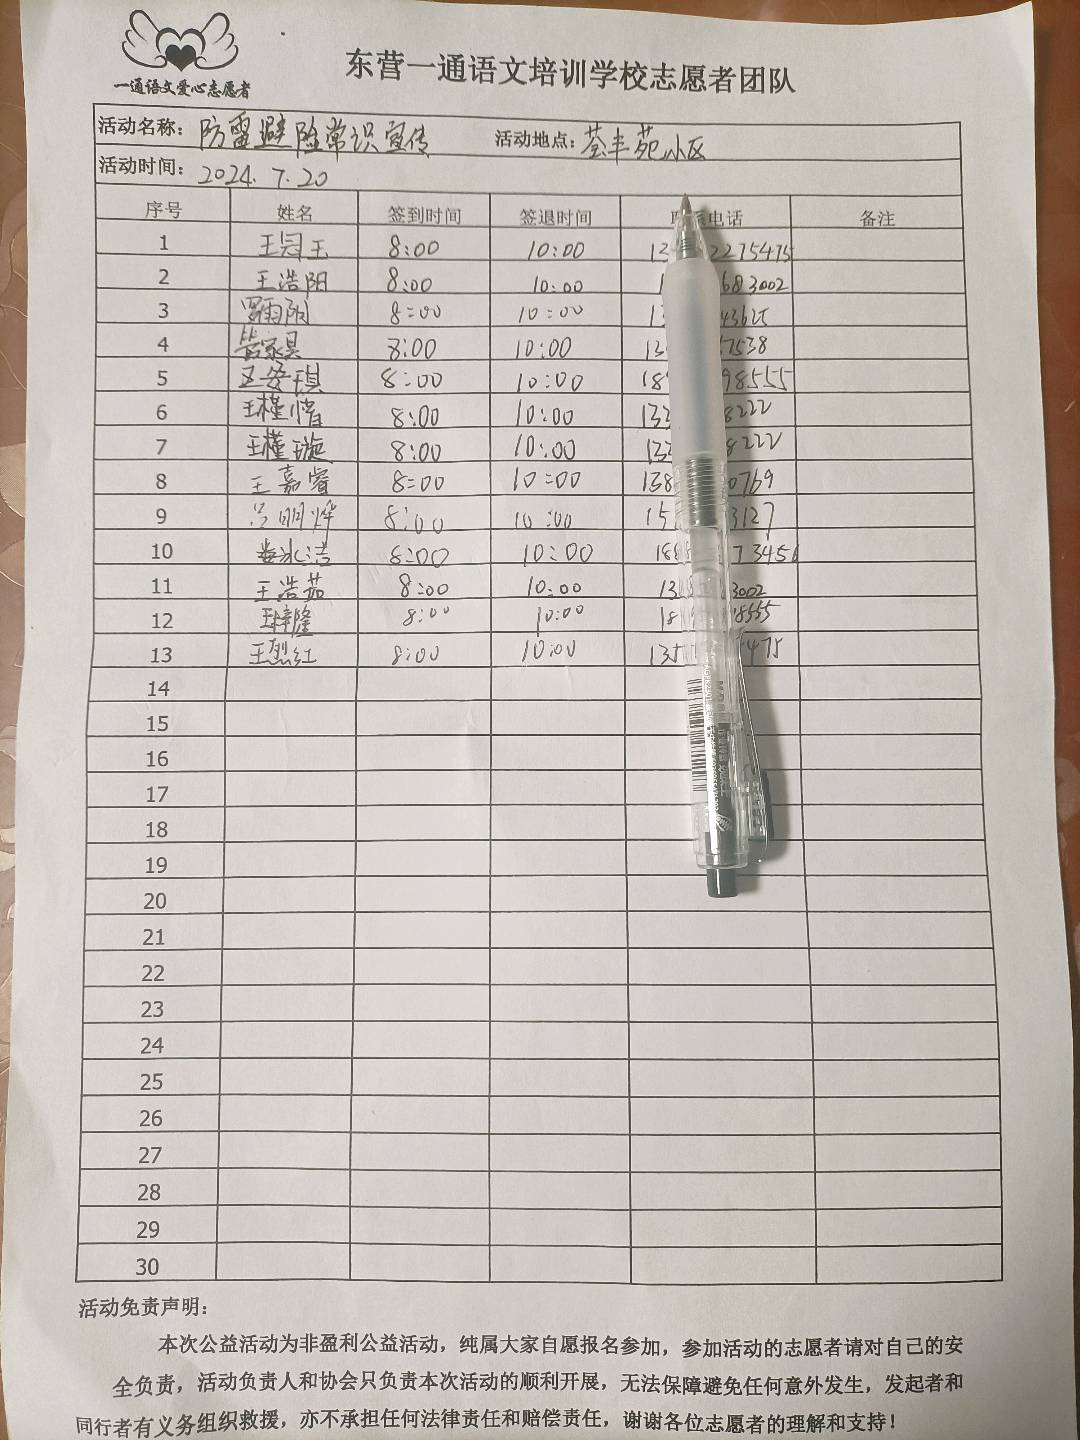 一通语文爱心志愿者
东营一通语文培训学校志愿者团队
活动名称：防雷避险常识宣传 活动地点：荟丰苑小区
活动时间：2024.7.20
序号 姓名 签到时间 签退时间 电话 备注
1 王冠玉 8:00 10:00 13 2275475
2 王浩阳 8:00 10:00 1 683002
3 罗雨阳 8:00 10:00 13 43625
4 8:00 10:00 13 7538
5 8:00 10:00 18 98555
6 王槿惜 8:00 10:00 133 8222
7 王槿璇 8:00 10:00 133 8222
8 王嘉睿 8:00 10:00 138 0769
9 吕明烨 8:00 10:00 15 3127
10 娄冰洁 8:00 10:00 188 73456
11 王浩茹 8:00 10:00 13 3002
12 王梓隆 8:00 10:00 18 8555
13 王烈红 8:00 10:00 135 475
14
15
16
17
18
19
20
21
22
23
24
25
26
27
28
29
30
活动免责声明：
本次公益活动为非盈利公益活动，纯属大家自愿报名参加，参加活动的志愿者请对自己的安
全负责，活动负责人和协会只负责本次活动的顺利开展，无法保障避免任何意外发生，发起者和
同行者有义务组织救援，亦不承担任何法律责任和赔偿责任，谢谢各位志愿者的理解和支持！